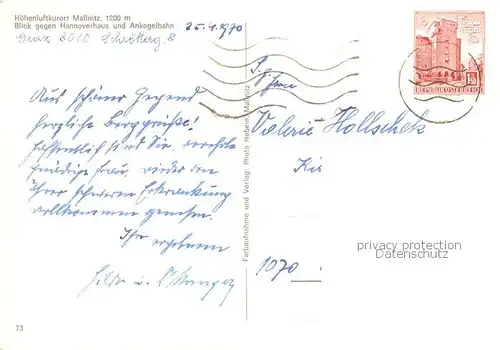 Höhenluftkurort Mallnitz, 1200 m
Blick gegen Hannoverhaus und Ankogelbahn
Graz 8010 Schrötterg. 8
25.1.1970
Aus schöner Gegend
herzliche Berggrüße!
Hoffentlich sind Sie, verehrte
gnädige Frau, wieder von
Ihrer schweren Erkrankung
vollkommen genesen.
Ihr ergebenen
Hilda u.
73
Farbaufnahme und Verlag: Photo Mallnitz
Valerie Hollschek
1070
REPUBLIK ÖSTERREICH
privacy protection
Datenschutz